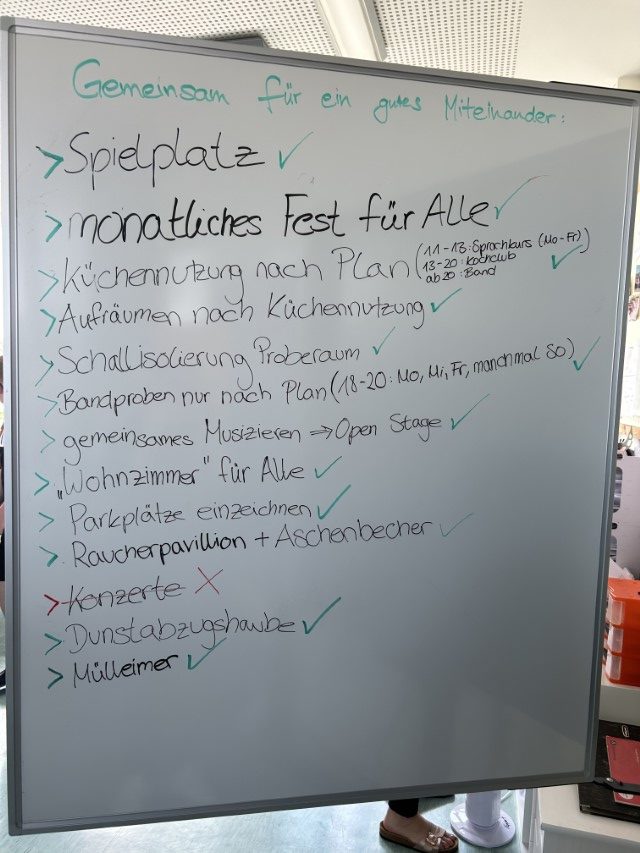 Gemeinsam für ein gutes Miteinander:
> Spielplatz ✓
> monatliches Fest für Alle ✓
> Küchennutzung nach Plan (11-13: Sprachkurs (Mo-Fr)
13-20: Kochclub
ab 20: Band) ✓
> Aufräumen nach Küchennutzung ✓
> Schallisolierung Proberaum ✓
> Bandproben nur nach Plan (18-20: Mo, Mi, Fr, manchmal So) ✓
> gemeinsames Musizieren → Open Stage ✓
> „Wohnzimmer" für Alle ✓
> Parkplätze einzeichnen ✓
> Raucherpavillion + Aschenbecher ✓
> Konzerte ✗
> Dunstabzugshaube ✓
> Mülleimer ✓